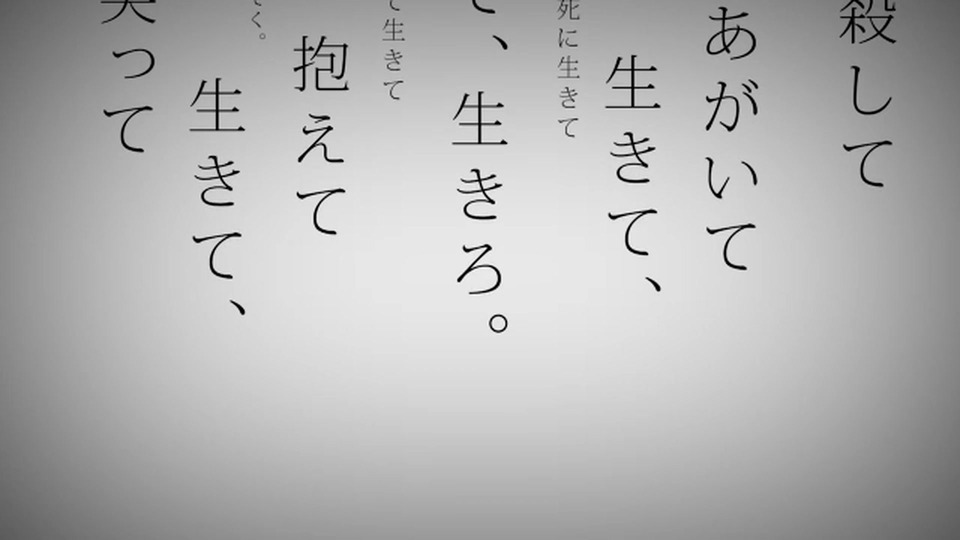 殺して
あがいて
生きて、
死に生きて
、生きろ。
て生きて
抱えて
生きて、
てく。
笑って